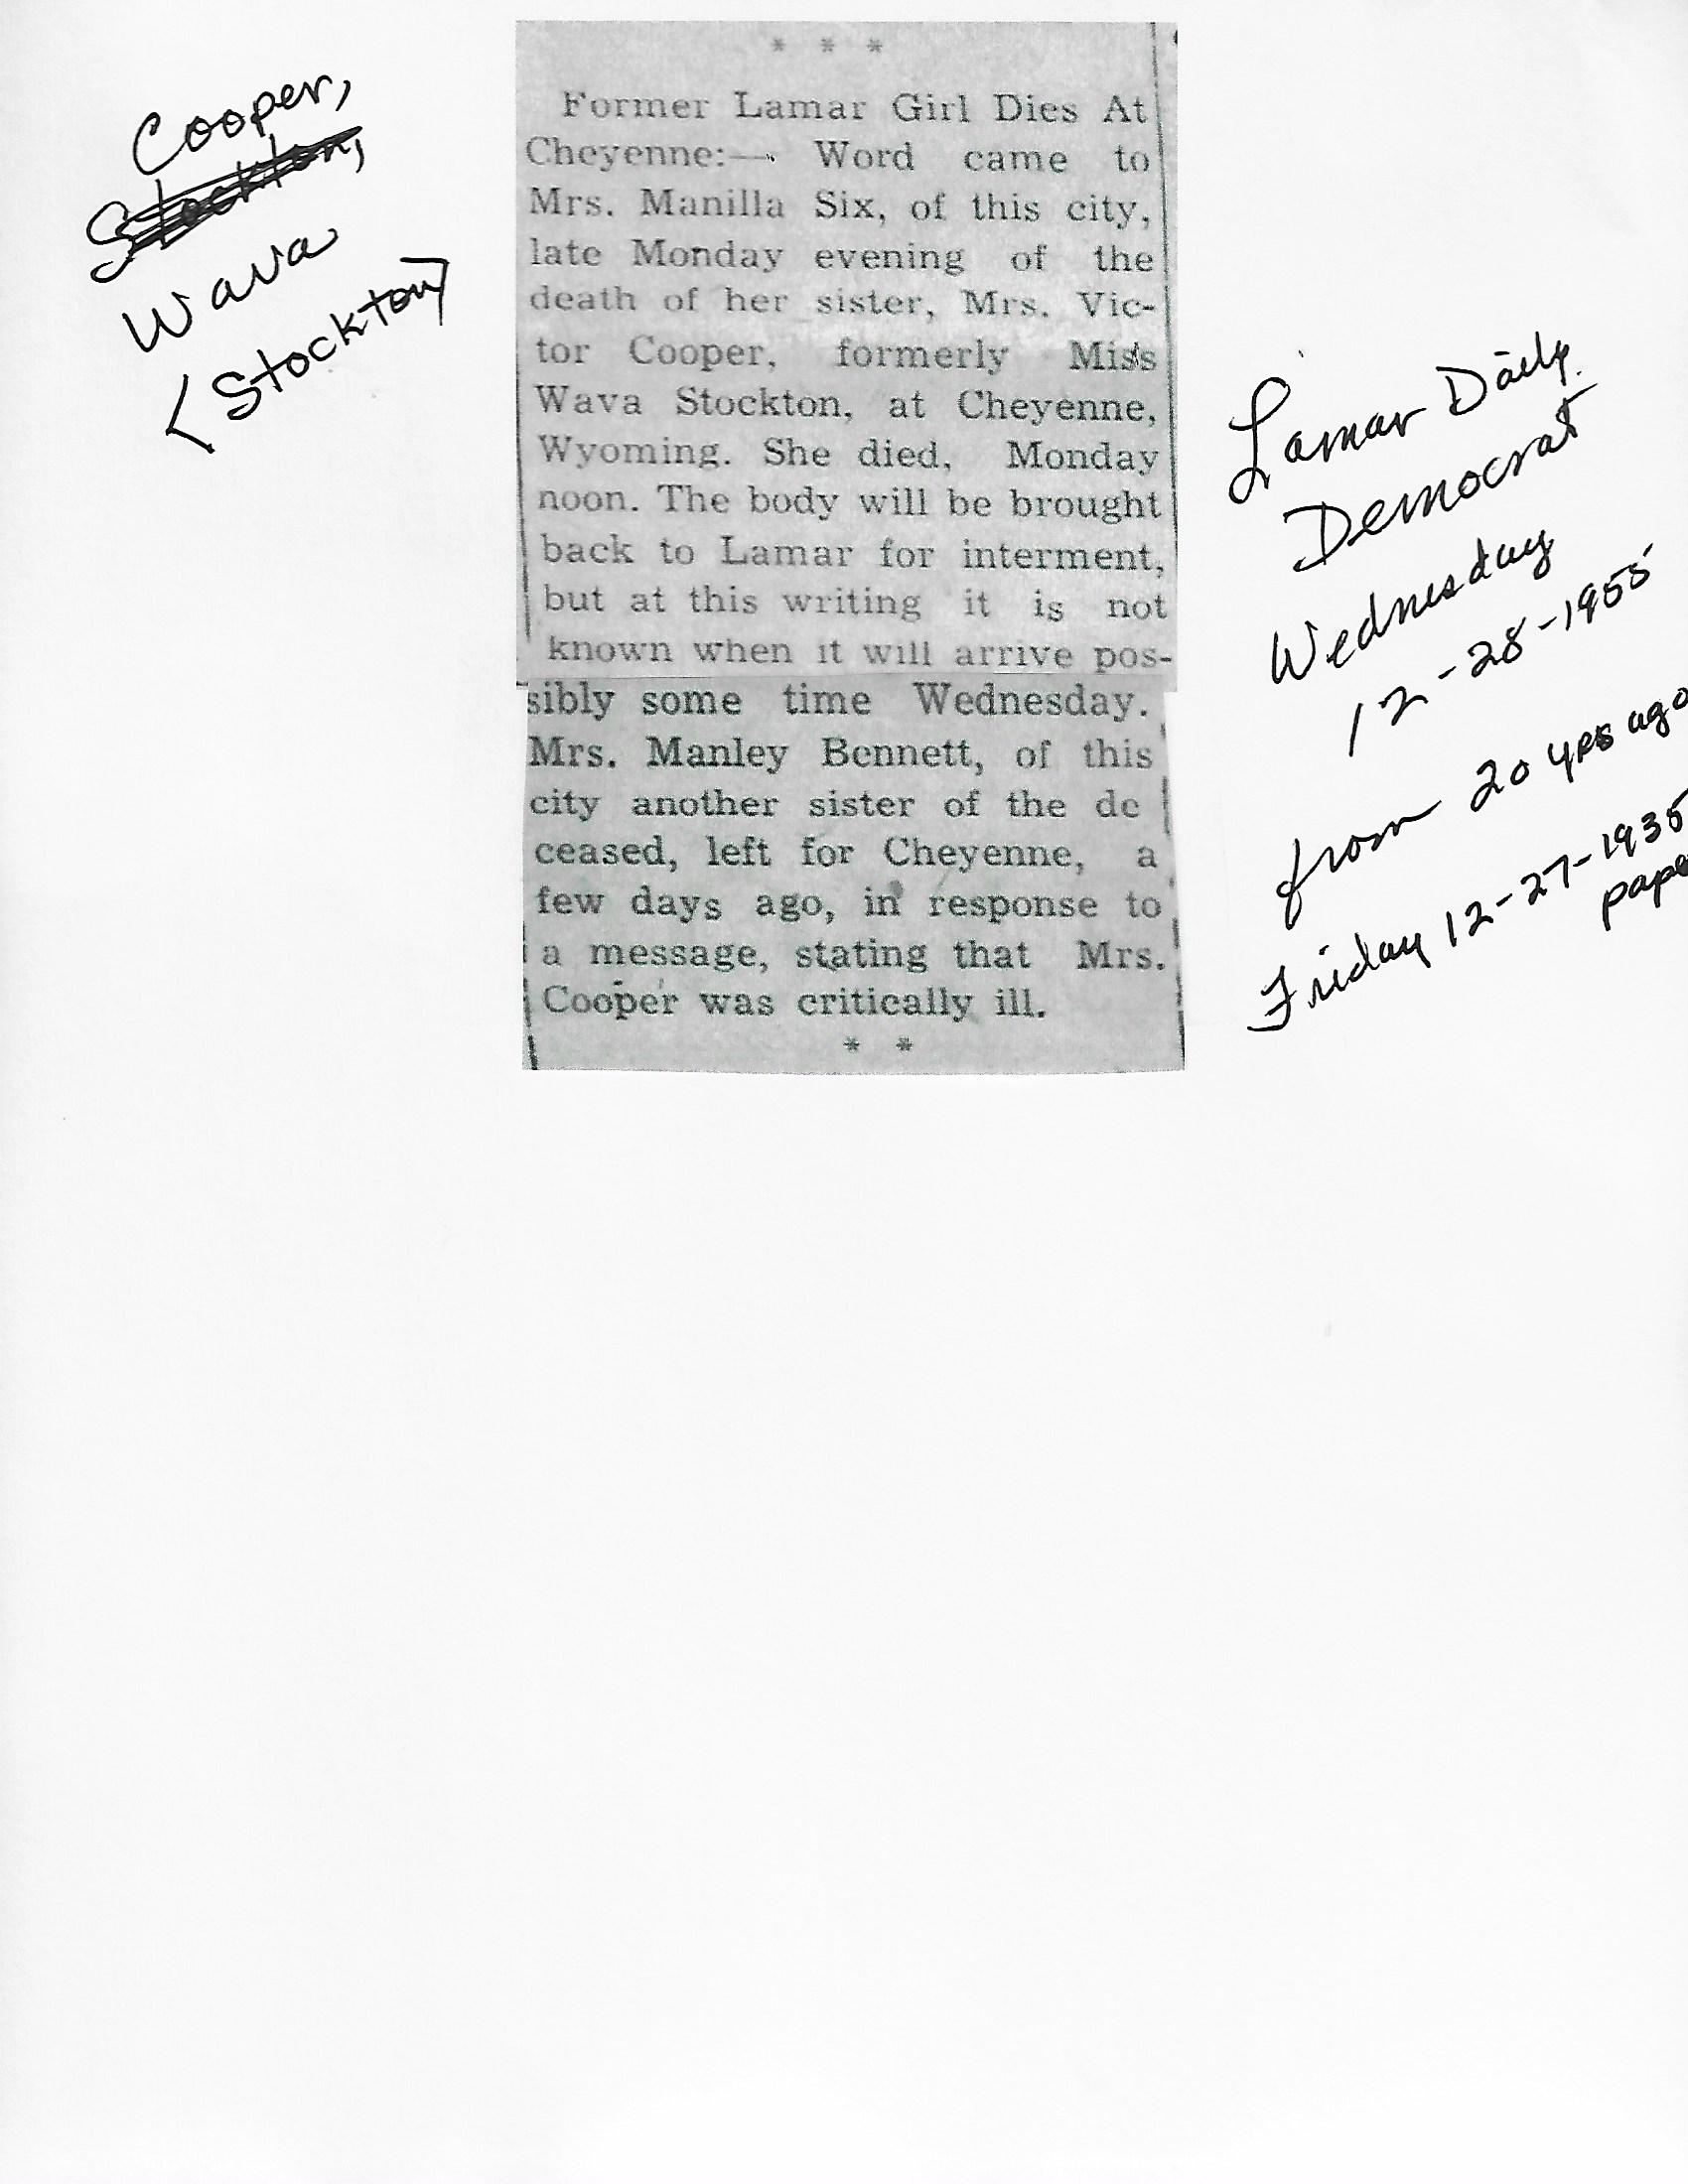 Cooper,
Stockton,
Wava
<Stockton>
* * *
Former Lamar Girl Dies At
Cheyenne:— Word came to
Mrs. Manilla Six, of this city,
late Monday evening of the
death of her sister, Mrs. Vic-
tor Cooper, formerly Miss
Wava Stockton, at Cheyenne,
Wyoming. She died, Monday
noon. The body will be brought
back to Lamar for interment,
but at this writing it is not
known when it will arrive pos-
sibly some time Wednesday.
Mrs. Manley Bennett, of this
city another sister of the de
ceased, left for Cheyenne, a
few days ago, in response to
a message, stating that Mrs.
Cooper was critically ill.
* *
Lamar Daily
Democrat
Wednesday
12-28-1955
from 20 yrs ago
Friday 12-27-1935
pape